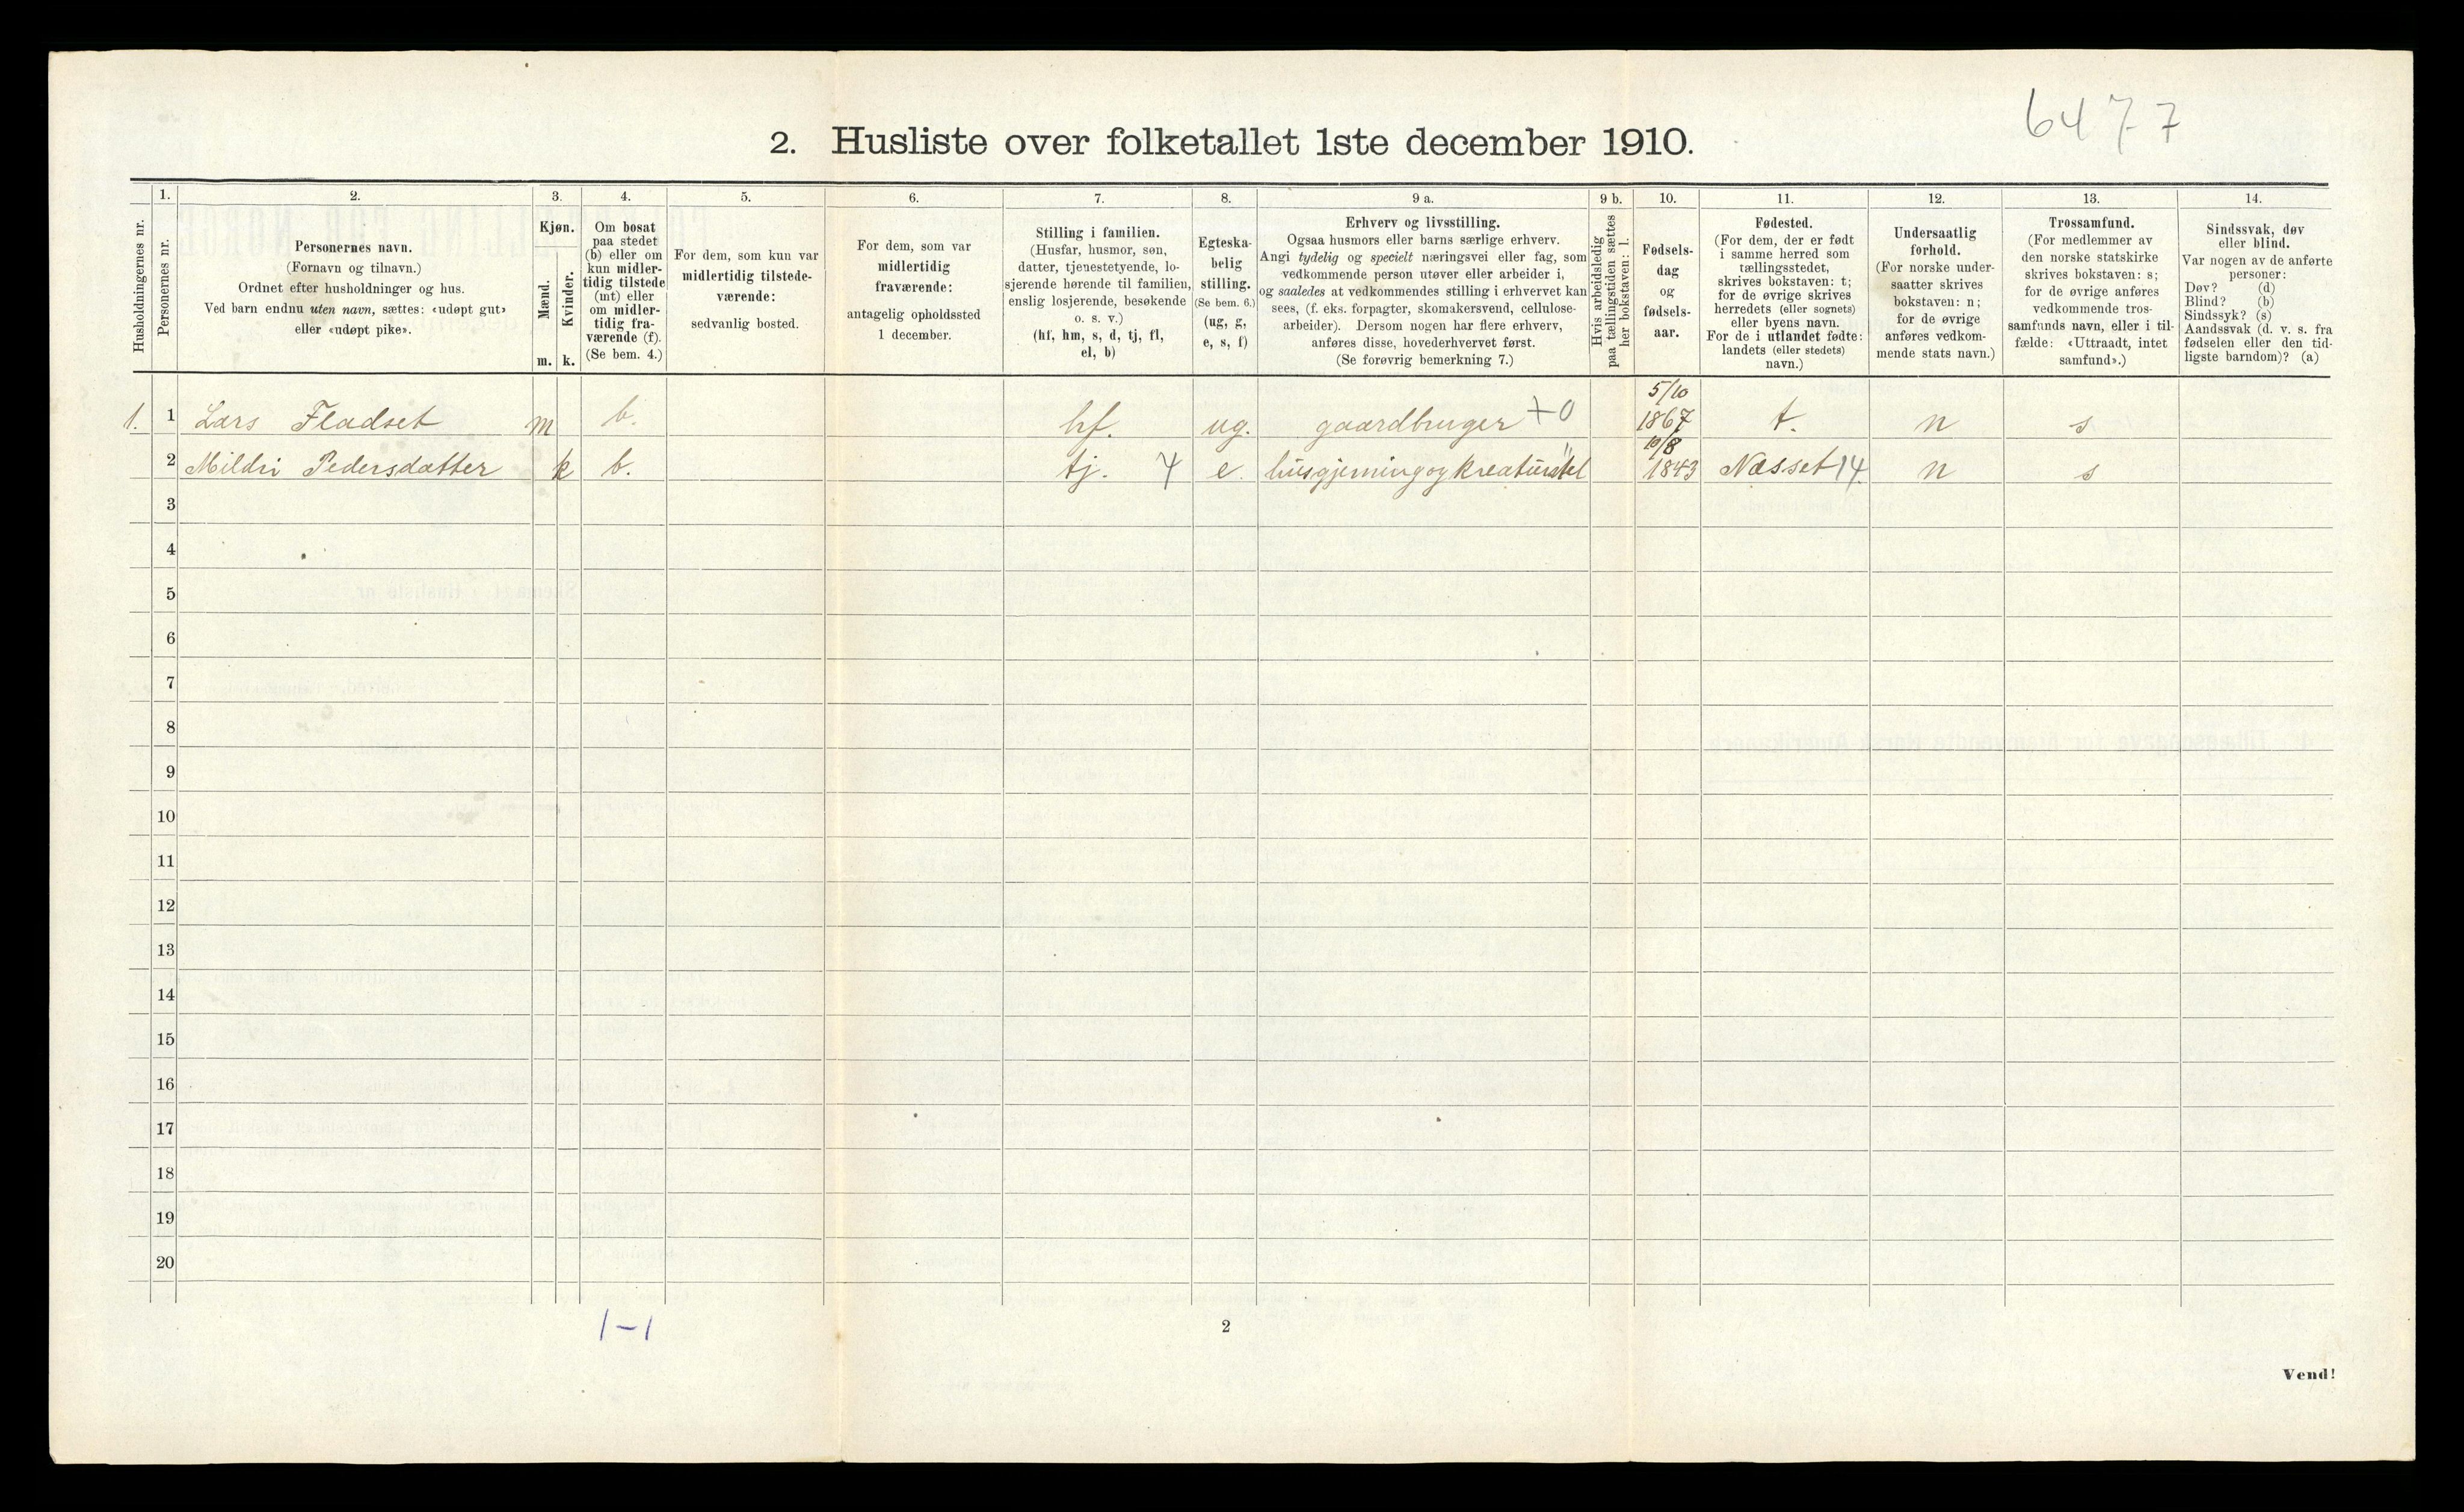 6477
2. Husliste over folketallet 1ste december 1910.
Husholdningernes nr.
1.
Personernes nr.
2.
Personernes navn.
(Fornavn og tilnavn.)
Ordnet efter husholdninger og hus.
Ved barn endnu uten navn, sættes: «udøpt gut»
eller «udøpt pike».
3.
Kjøn.
Mænd.
Kvinder.
m. k.
4.
Om bosat
paa stedet
(b) eller om
kun midler-
tidig tilstede
(mt) eller
om midler-
tidig fra-
værende (f).
(Se bem. 4.)
5.
For dem, som kun var
midlertidig tilstede-
værende:
sedvanlig bosted.
6.
For dem, som var
midlertidig
fraværende:
antagelig opholdssted
1 december.
7.
Stilling i familien.
(Husfar, husmor, søn,
datter, tjenestetyende, lo-
sjerende hørende til familien,
enslig losjerende, besøkende
o. s. v.)
(hf, hm, s, d, tj, fl,
el, b)
8.
Egteska-
belig
stilling.
(Se bem. 6.)
(ug, g,
e, s, f)
9 a.
Erhverv og livsstilling.
Ogsaa husmors eller barns særlige erhverv.
Angi tydelig og specielt næringsvei eller fag, som
vedkommende person utøver eller arbeider i,
og saaledes at vedkommendes stilling i erhvervet kan
sees, (f. eks. forpagter, skomakersvend, cellulose-
arbeider). Dersom nogen har flere erhverv,
anføres disse, hovederhvervet først.
(Se forøvrig bemerkning 7.)
9 b.
Hvis arbeidsledig
paa tællingstiden sættes
her bokstaven: l.
10.
Fødsels-
dag
og
fødsels-
aar.
11.
Fødested.
(For dem, der er født
i samme herred som
tællingsstedet,
skrives bokstaven: t;
for de øvrige skrives
herredets (eller sognets)
eller byens navn.
For de i utlandet fødte:
landets (eller stedets)
navn.)
12.
Undersaatlig
forhold.
(For norske under-
saatter skrives
bokstaven: n;
for de øvrige
anføres vedkom-
mende stats navn.)
13.
Trossamfund.
(For medlemmer av
den norske statskirke
skrives bokstaven: s;
for de øvrige anføres
vedkommende tros-
samfunds navn, eller i til-
fælde: «Uttraadt, intet
samfund».)
14.
Sindssvak, døv
eller blind.
Var nogen av de anførte
personer:
Døv? (d)
Blind? (b)
Sindssyk? (s)
Aandssvak (d. v. s. fra
fødselen eller den tid-
ligste barndom)? (a)
1. 1 Lars Fladset m b. hf. ug. gaardbruger +0 5/10 1867 t. n s
2 Mildri Pedersdatter k b. tj. 4 e. husgjerning og kreaturstel 10/8 1843 Næsset 14. n s
3
4
5
6
7
8
9
10
11
12
13
14
15
16
17
18
19
20
1-1
2
Vend!